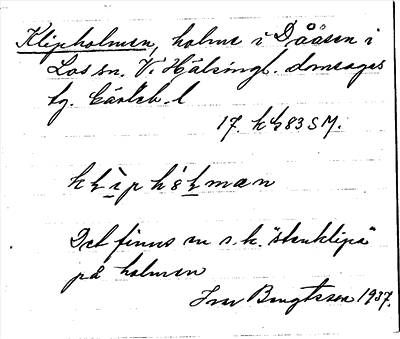 Klipholmen, holme i Dååsen i
Los sn. V. Hälsingl. domsagas
tg. Gävleb. l
17. h 83 SM.
Det finns en s.k. "stenklipa"
på holmen
Bengtsson 1937.